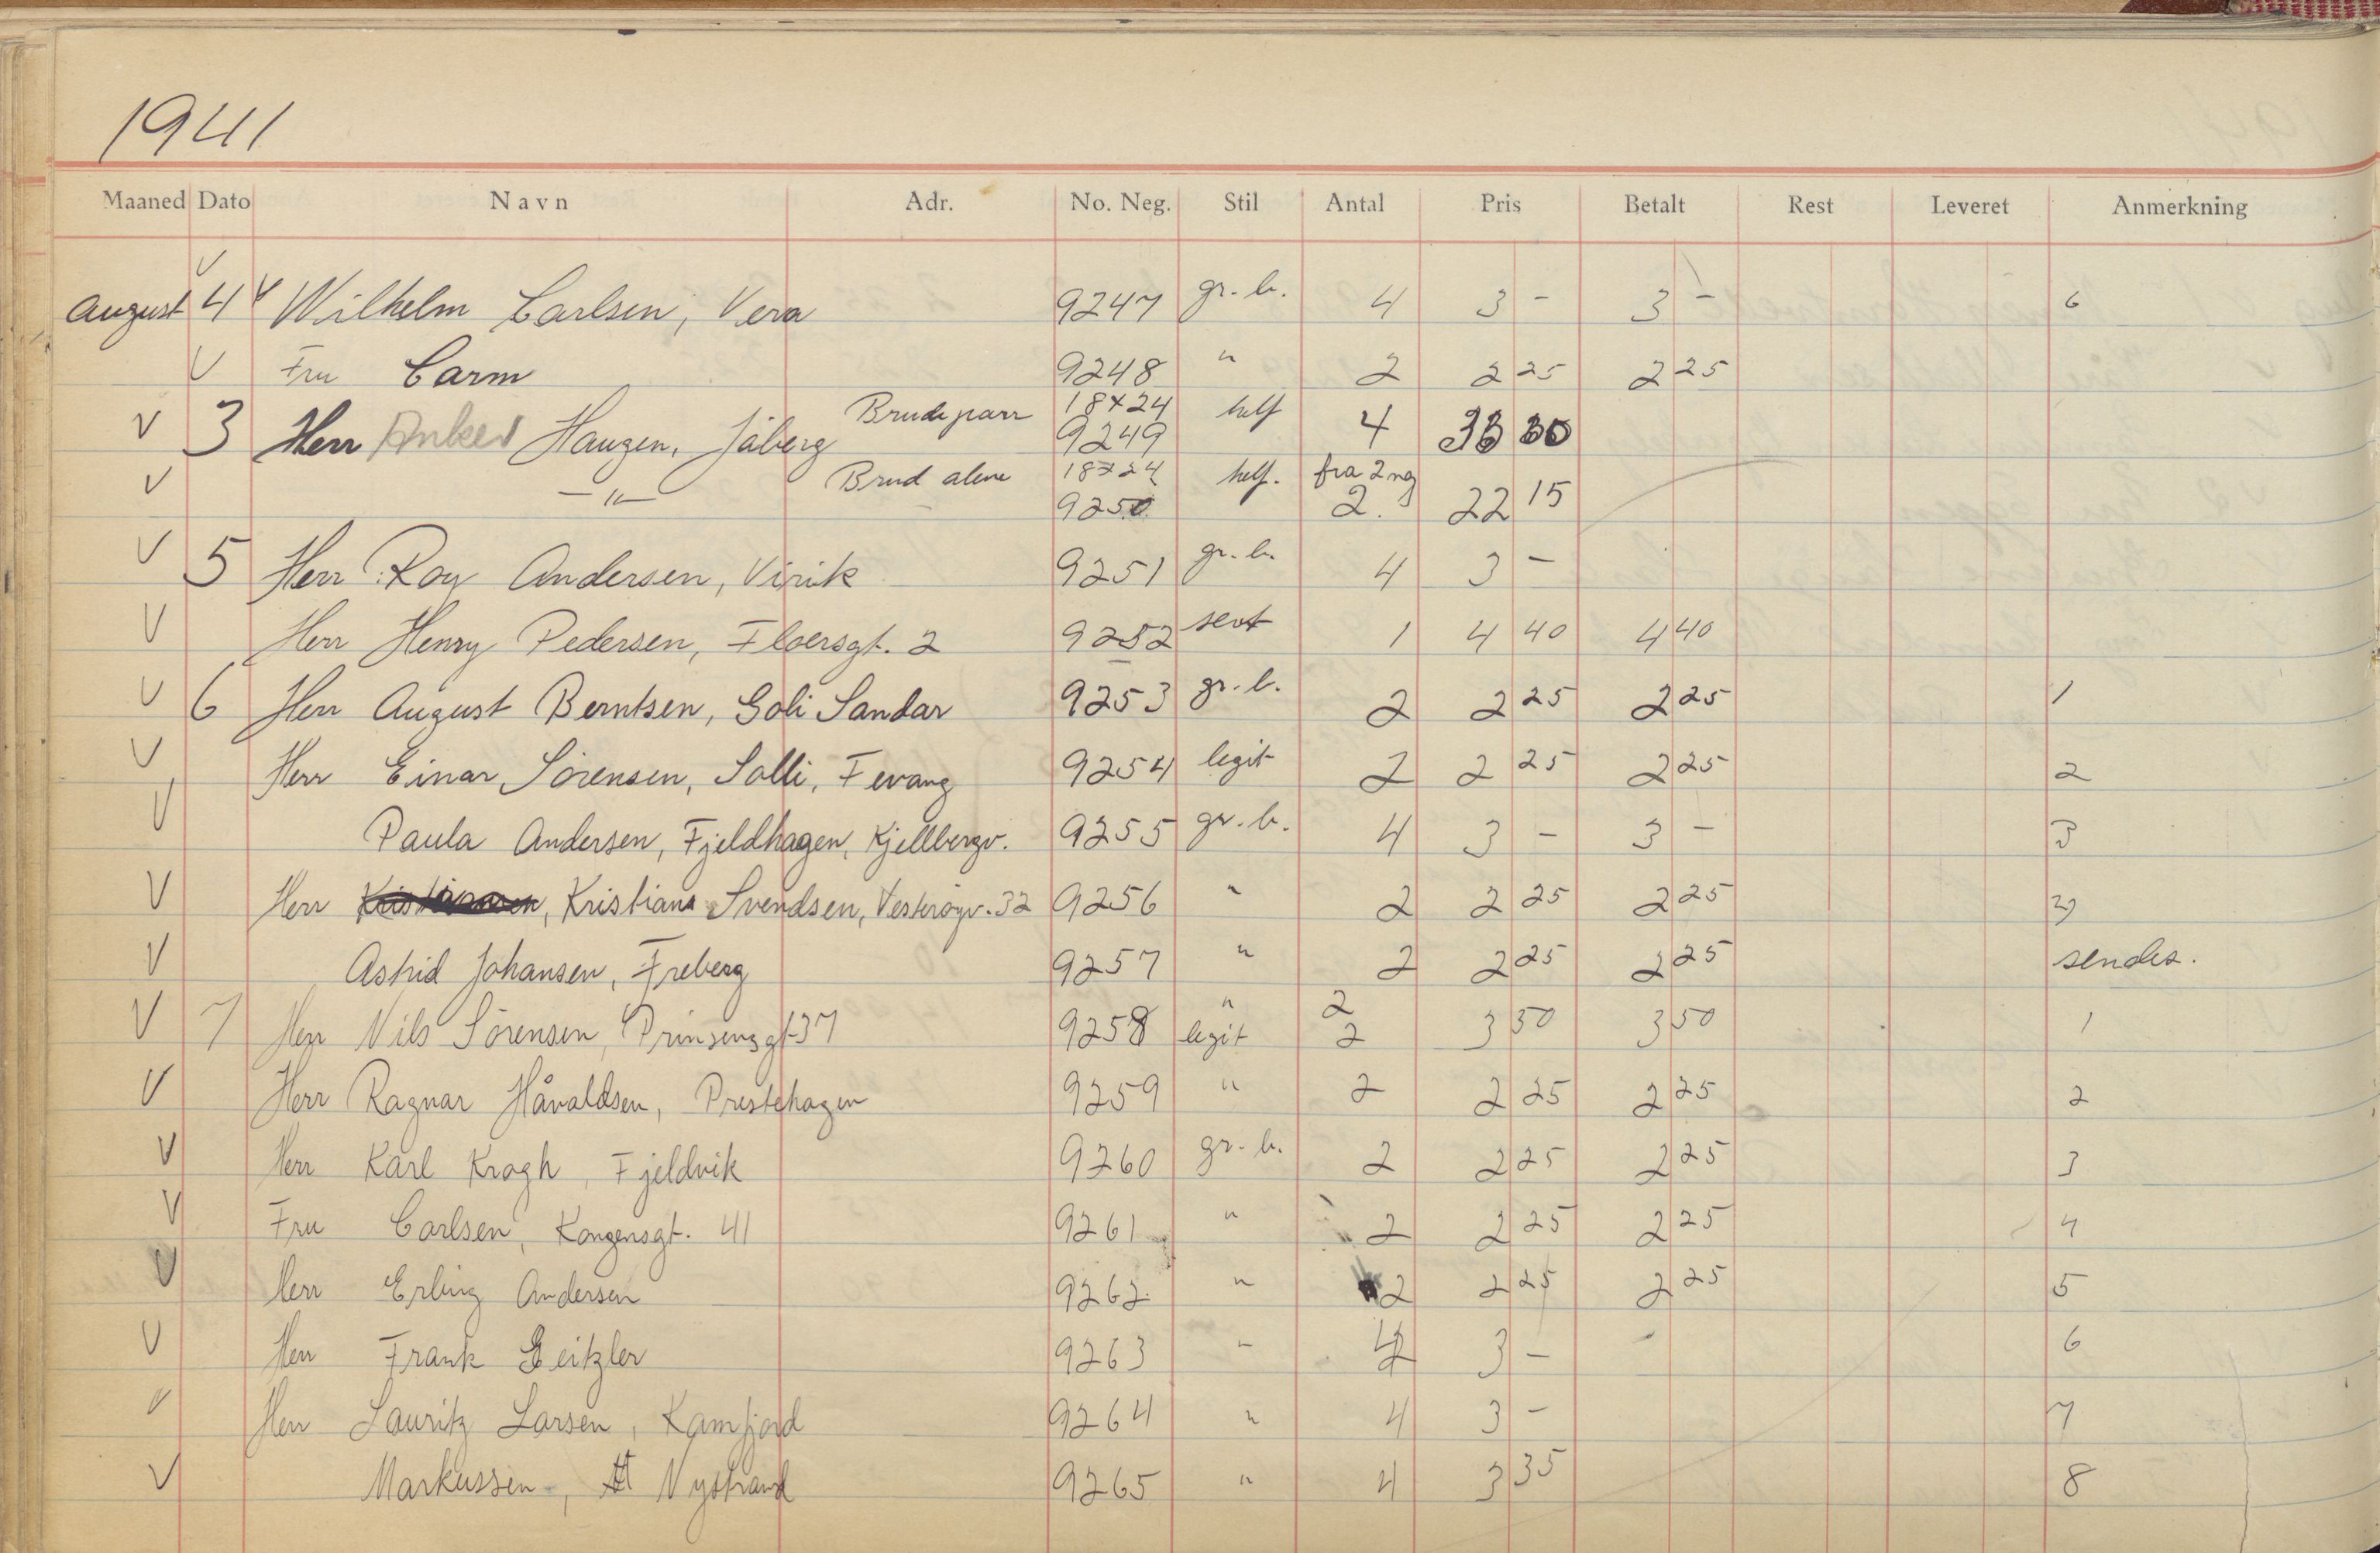 1941
Maaned Dato Navn Adr. No. Neg. Stil Antal Pris Betalt Rest Leveret Anmerkning
V
August 4 V Wilhelm Carlsen, Vera 9247 gr. b. 4 3 - 3 - 6
V Fru Carm 9248 " 2 2 25 2 25
V 3 Herr Anker Haugen, Jåberg Brudeparr 18x24 9249 helf 4 33 30
V -"- Brud alene 18x24 9250 helf. fra 2 ng 2. 22 15
V 5 Herr Roy Andersen, Virik 9251 gr. b. 4 3 -
V Herr Henry Pedersen, Floersgt. 2 9252 sort 1 4 40 4 40
V 6 Herr August Berntsen, Goli Sandar 9253 gr. b. 2 2 25 2 25 1
V Herr Einar Sörensen, Solli, Fevang 9254 legit 2 2 25 2 25 2
V Paula Andersen, Fjeldhagen, Kjellbergv. 9255 gr. b. 4 3 - 3 - 3
V Herr Kristiansen, Kristians Svendsen, Vesteröyv. 32 9256 " 2 2 25 2 25
V Astrid Johansen, Freberg 9257 " 2 2 25 2 25 sendes.
V 7 Herr Nils Sörensen, Prinsensgt 37 9258 " legit 2 2 3 50 3 50 1
V Herr Ragnar Håvaldsen, Prestehagen 9259 " 2 2 25 2 25 2
V Herr Karl Krogh, Fjeldvik 9260 gr. b. 2 2 25 2 25 3
V Fru Carlsen, Kongensgt. 41 9261 " 2 2 25 2 25 4
V Herr Erling Andersen 9262 " 2 2 25 2 25 5
V Herr Frank Beitzler 9263 " 4 3 - 6
V Herr Lauritz Larsen, Kamfjord 9264 " 4 3 - 7
V Markussen, Nystrand 9265 " 4 3 35 8